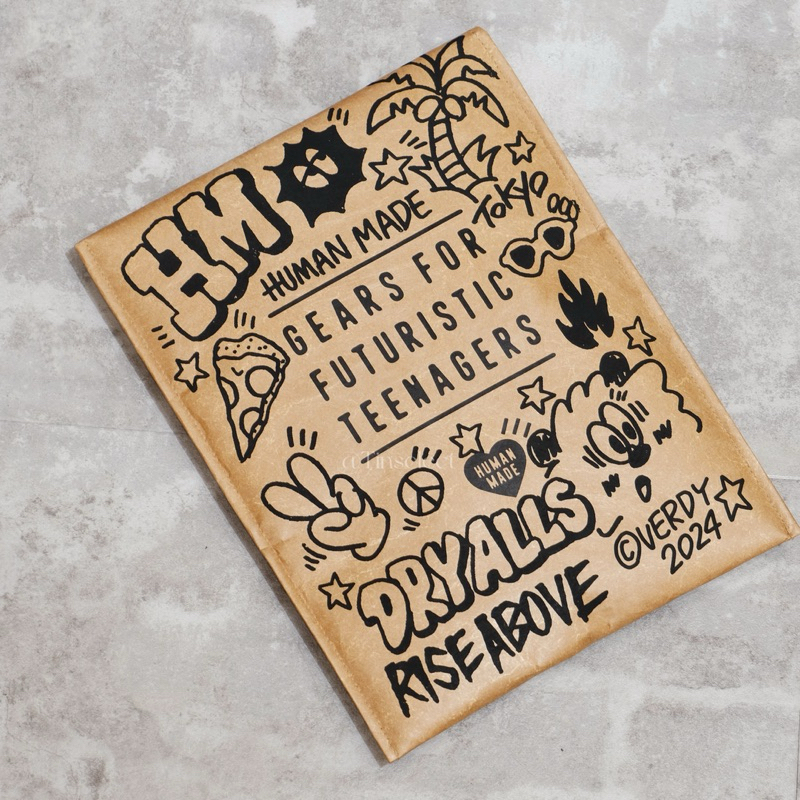 HM
HUMAN MADE
TOKYO
GEARS FOR
FUTURISTIC
TEENAGERS
HUMAN
MADE
DRY ALLS
RISE ABOVE
©VERDY
2024